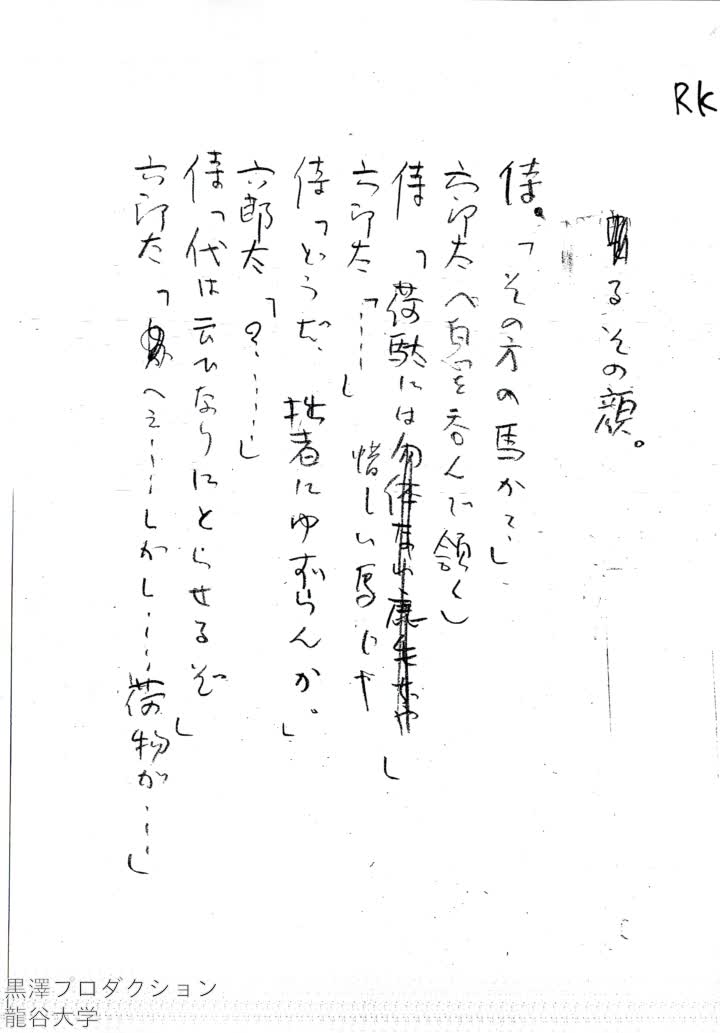 RK
るその顔。
侍。「その方の馬かて」
六郎太へ息を呑んで頷く」
侍「荷駄には勿体ない 鹿毛ぢや」
惜しい馬じや
六郎太「……」
侍「どうぢ、拙者にゆずらんか。」
六郎太「?……」
侍「代は云ひなりにとらせるぞ」
六郎太「へえ……しかし……荷物が……」
黒澤プロダクション
龍谷大学